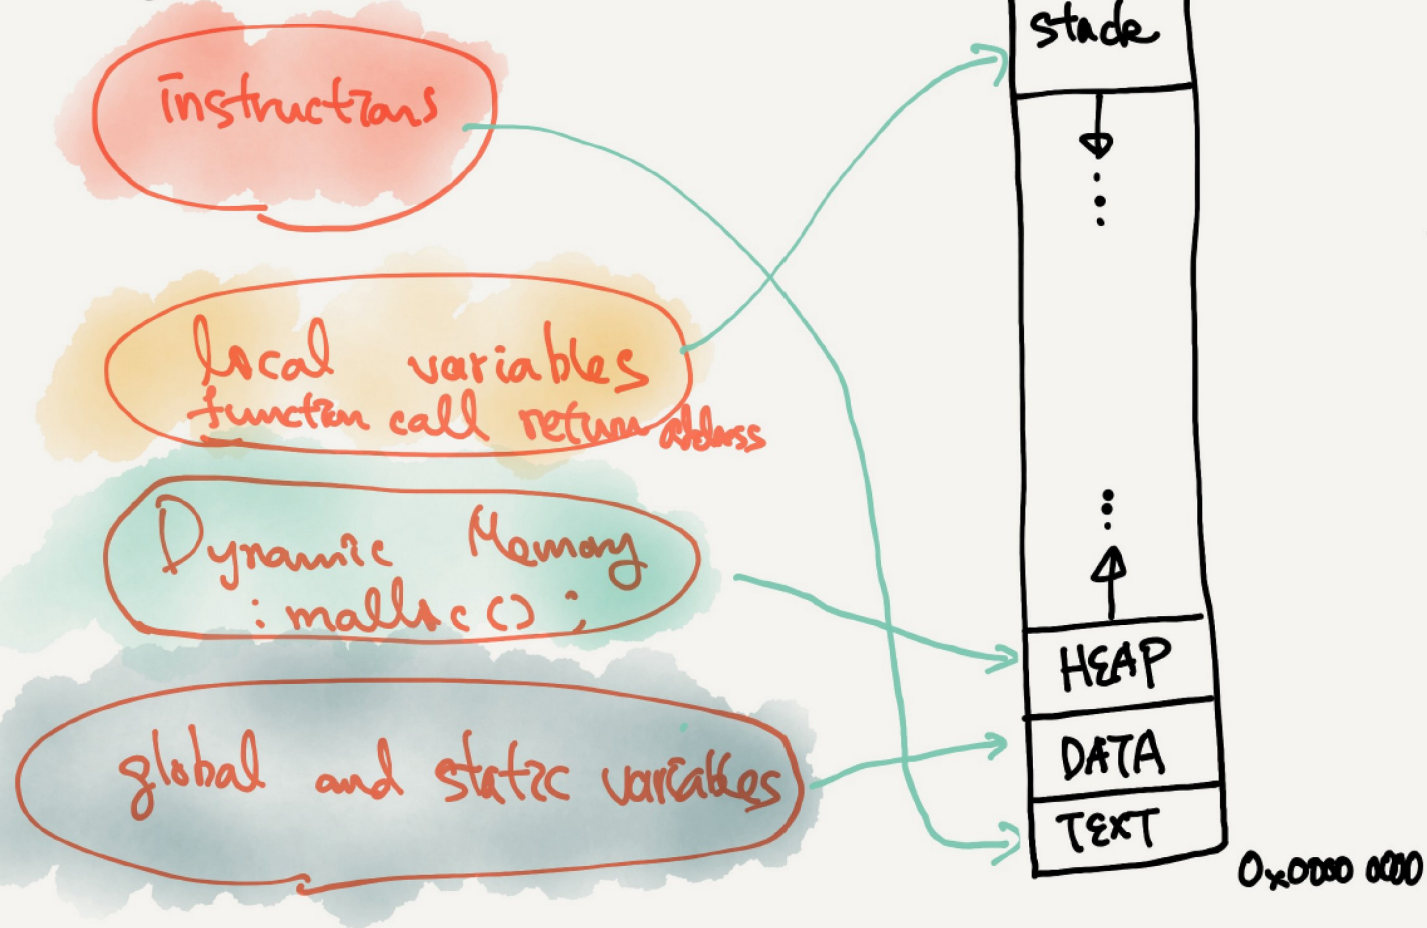 instructions
local variables
function call return address
Dynamic Memory
: malloc() ;
global and static variables
stack
HEAP
DATA
TEXT
0x0000 0000